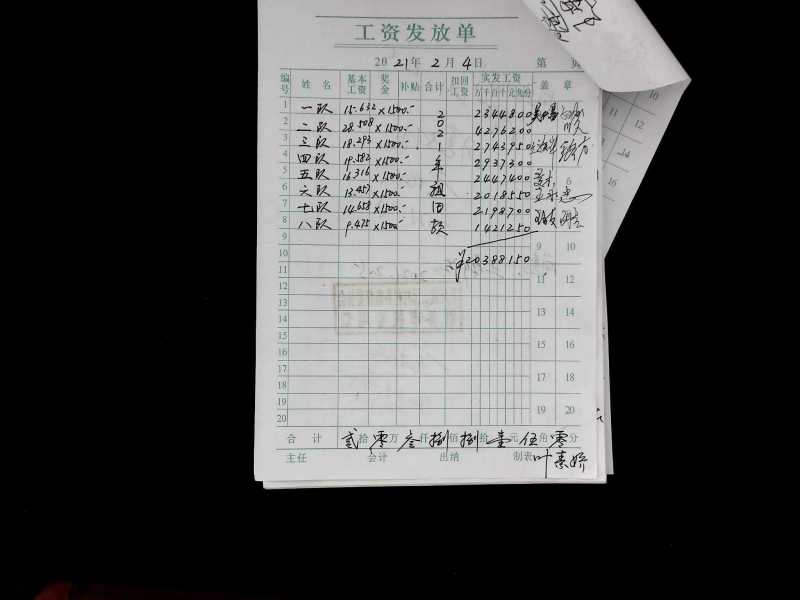 工资发放单
2021年2月4日 第 页
编号 姓名 基本工资 奖金 补贴 合计 扣回工资 实发工资 盖章
万千百十元角分
1 一队 15.632×1500.- 2 2344800
2 二队 28.508×1500.- 0 4276200
3 三队 18.293×1500.- 2 2743950
4 四队 19.582×1500.- 1 2937300
5 五队 16.316×1500.- 年 2447400 6
6 六队 13.457×1500.- 租 2018550
7 七队 14.658×1500.- 田 2198700
8 八队 9.475×1500.- 款 1421250
9 9 10
10 ¥20388150
11 11 12
12
13 13 14
14
15 15 16
16
17 17 18
18
19 19 20
20
合计 贰拾零万叁仟捌佰捌拾壹元伍角零分
主任 会计 出纳 制表
10
11 12
14
16